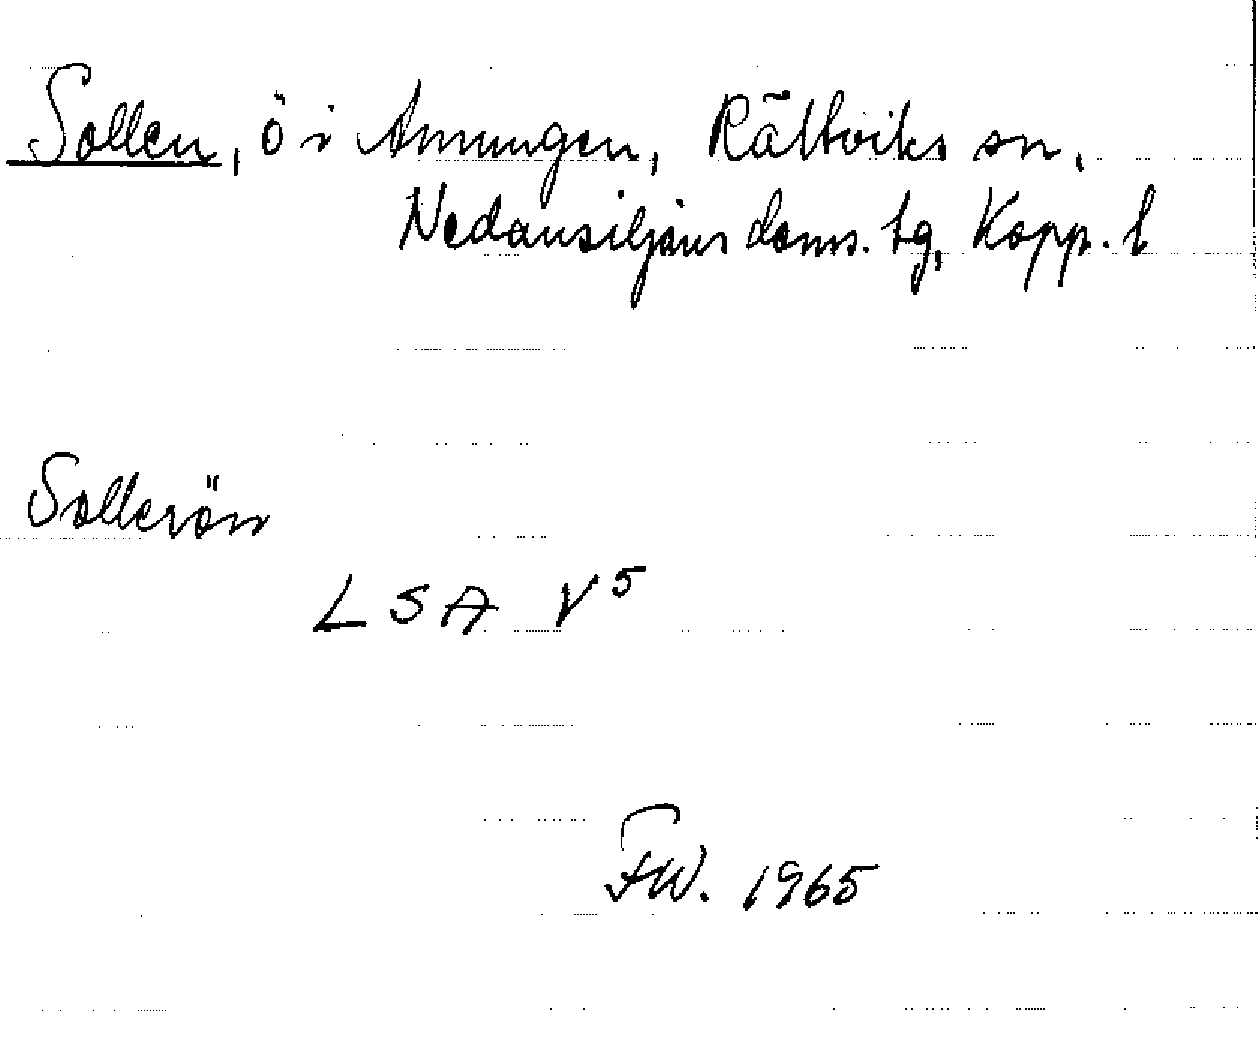 Sollen, ö i Amungen, Rättviks sn,
Nedansiljans doms. tg, Kopp. l
Sollerön
LSA V 5
FW. 1965